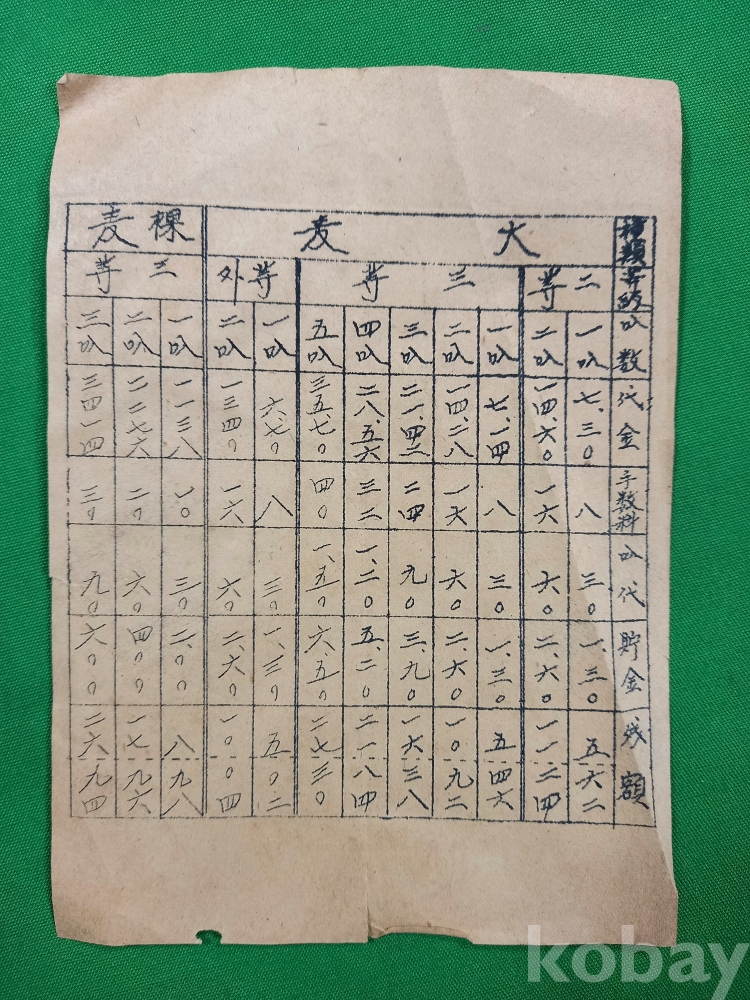 種類 等級 叺数 代金 手数料 叺代 貯金 残額
大麦
二等
一叺 七、三〇 八 三〇 一、三〇 五六二
二叺 一四、六〇 一六 六〇 二、六〇 一一二四
三等
一叺 七、一四 八 三〇 一、三〇 五四六
二叺 一四、二八 一六 六〇 二、六〇 一〇九二
三叺 二一、四二 二四 九〇 三、九〇 一六三八
四叺 二八、五六 三二 一、二〇 五、二〇 二一八四
五叺 三五、七〇 四〇 一、五〇 六、五〇 二七三〇
等外
一叺 六、七〇 八 三〇 一、三〇 五〇二
二叺 一三四〇 一六 六〇 二、六〇 一〇〇四
稞麦
三等
一叺 一一三八 一〇 三〇 二、〇〇 八九八
二叺 二二七六 二〇 六〇 四〇〇 一七九六
三叺 三四一四 三〇 九〇 六〇〇 二六九四
kobay